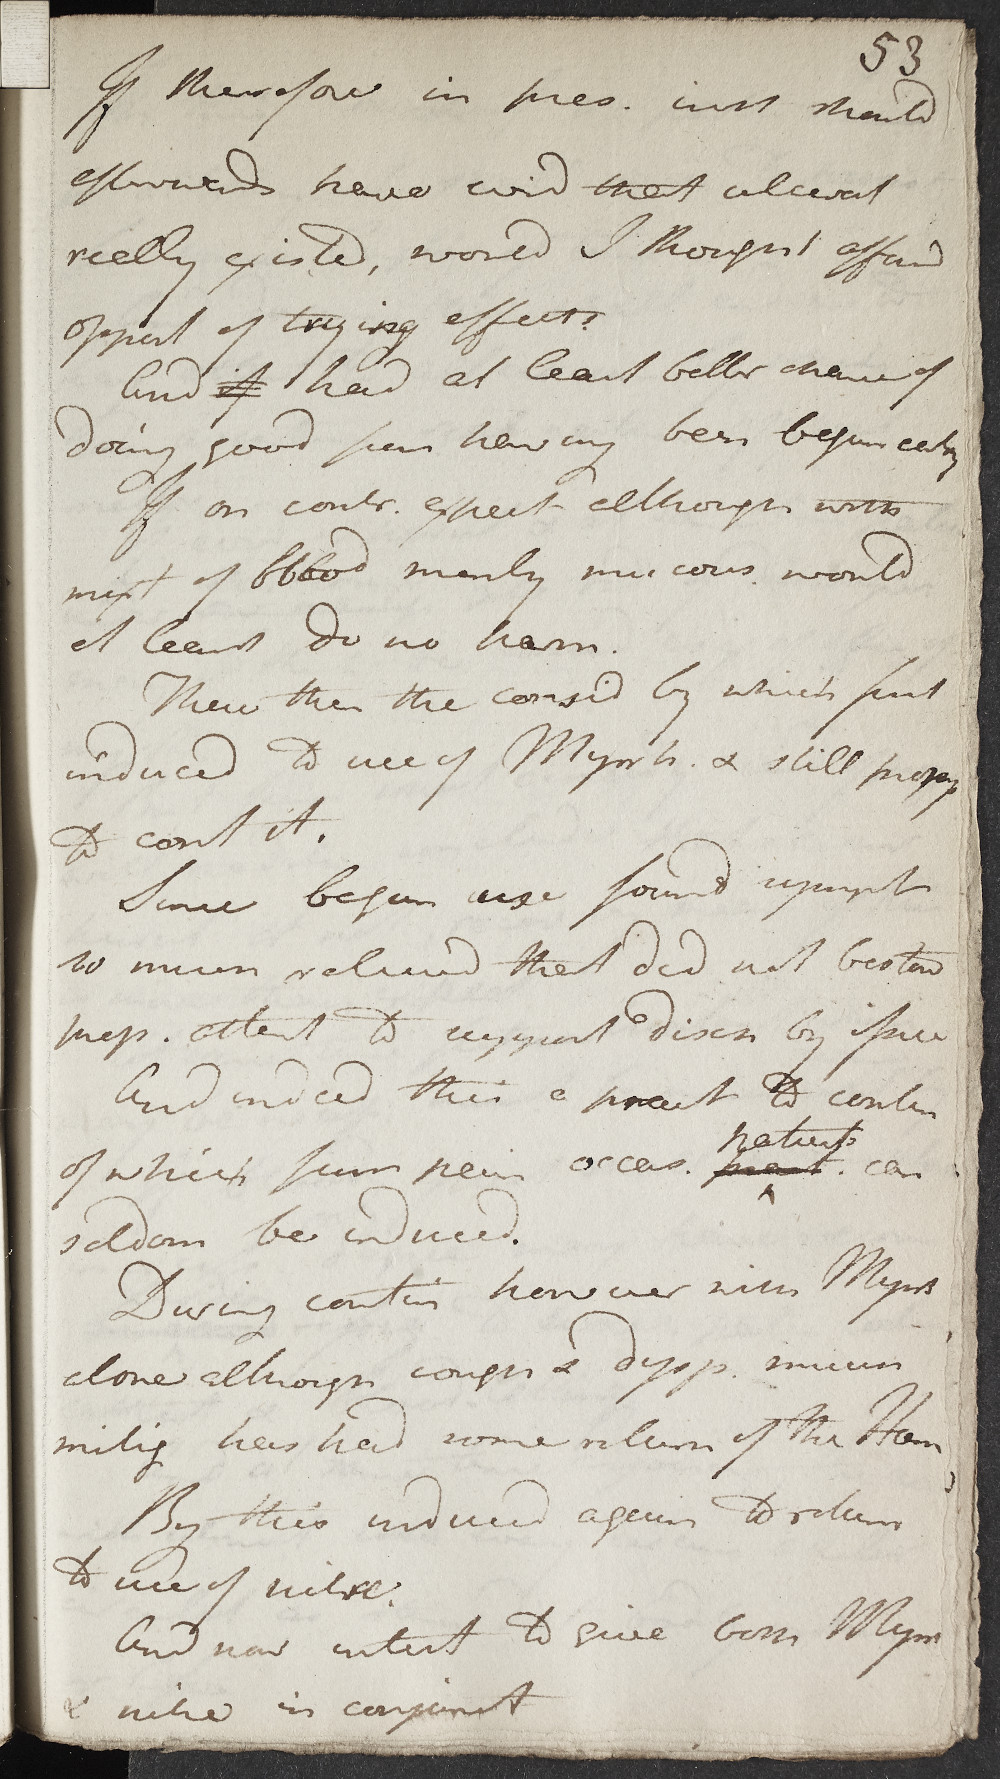 53
If therefore in pres. inst should
afterwards have evid that ulcerat
really existed, would I thought afford
opport of trying effects
And if had at least better chance of
doing good from having been begun early
If on contr. expect although with
mixt of blood merely mucous would
at least do no harm.
These then the consid by which first
induced to use of Myrrh. & still propose
to cont it.
Since begun use found sympt
so much relieved that did not bestow
prop. attent to support disch by issue
And indeed this a pract to contin
of which from pain occas. patients can
seldom be induced.
During contin however with Myrrh
alone although cough & dysp. much
mitig has had some return of the Haem
By this induced again to return
to use of nitre.
And now intent to give both Myrrh
& nitre in conjunct